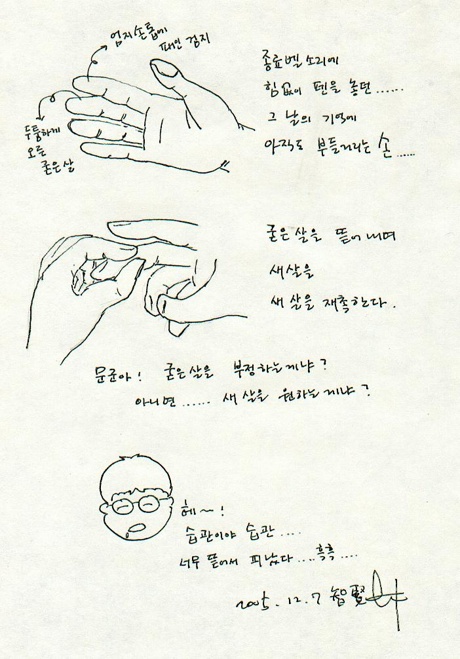 엄지손톱에
패인 검지
두툼하게
오른
굳은살
종료벨 소리에
힘없이 펜을 놓면......
그 날의 기억에
아직도 부들거리는 손......
굳은 살을 뜯어내며
새삭을
새 살을 재촉한다.
문군아! 굳은 살을 부정하는게냐?
아니면...... 새 살을 원하는게냐?
헤~!
습관이야 습관....
너무 뜯어서 피났다....흑흑....
2005. 12. 7 智賢